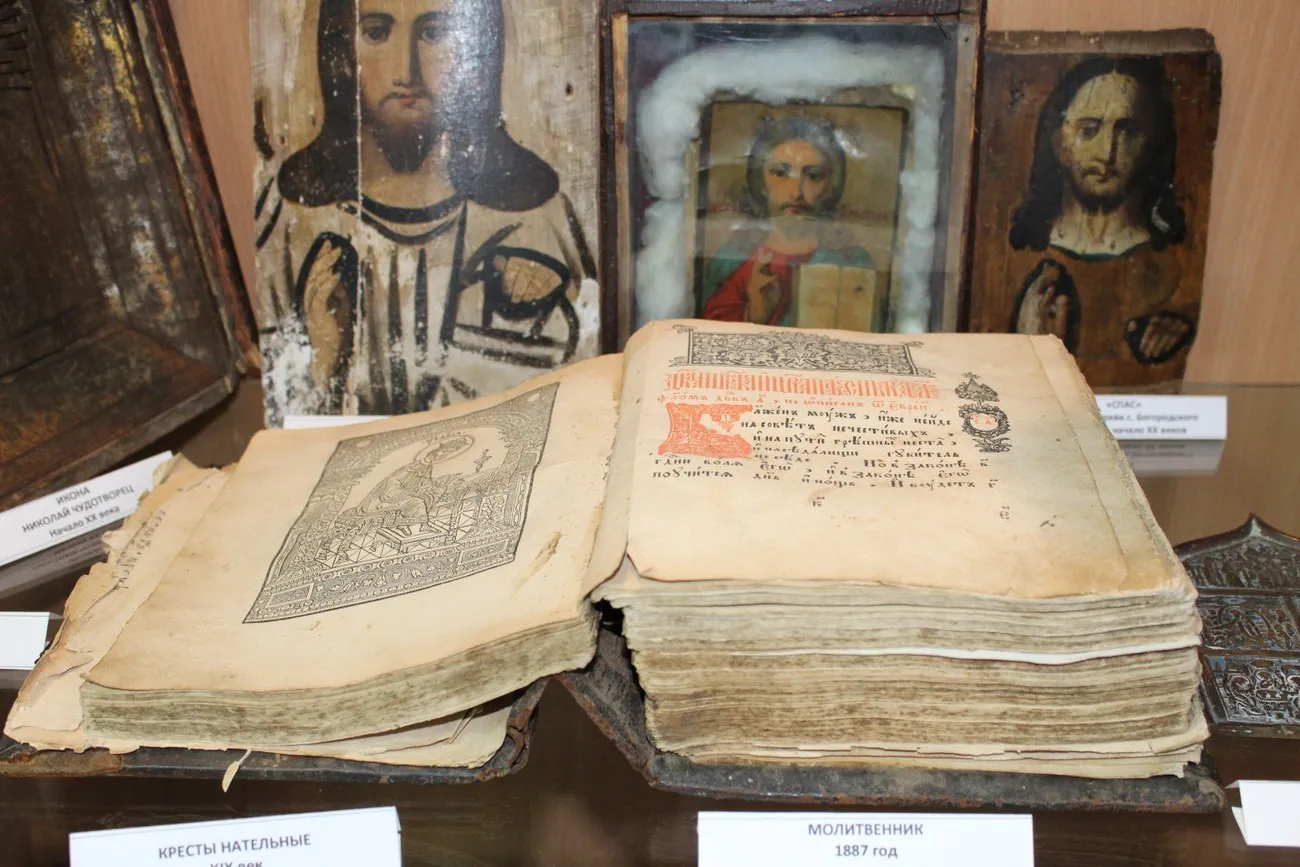 ИКОНА
НИКОЛАЙ ЧУДОТВОРЕЦ
Начало XX века
«СПАС»
с. Богородского
начало XX веков
Блаженъ моужъ , иже неиде
на совѣтъ нечестивыхъ ,
и на пути грѣшны неста ,
и наседалищи губитель
не сѣде . Но в законѣ
гдни волѧ его , и в законѣ его
поучитсѧ днь и нощь . И боудетъ
КРЕСТЫ НАТЕЛЬНЫЕ
XIX век
МОЛИТВЕННИК
1887 год